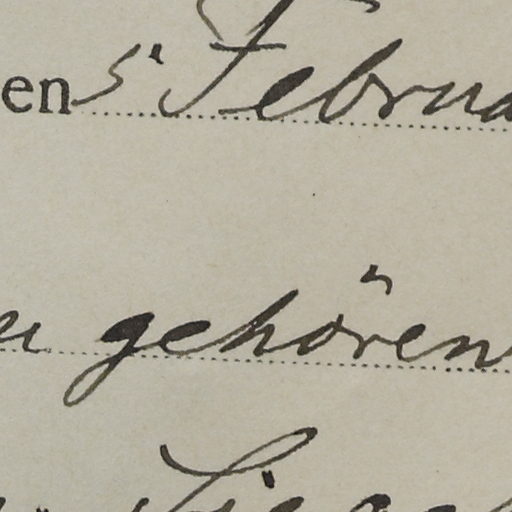 en 5. Februa
gehören